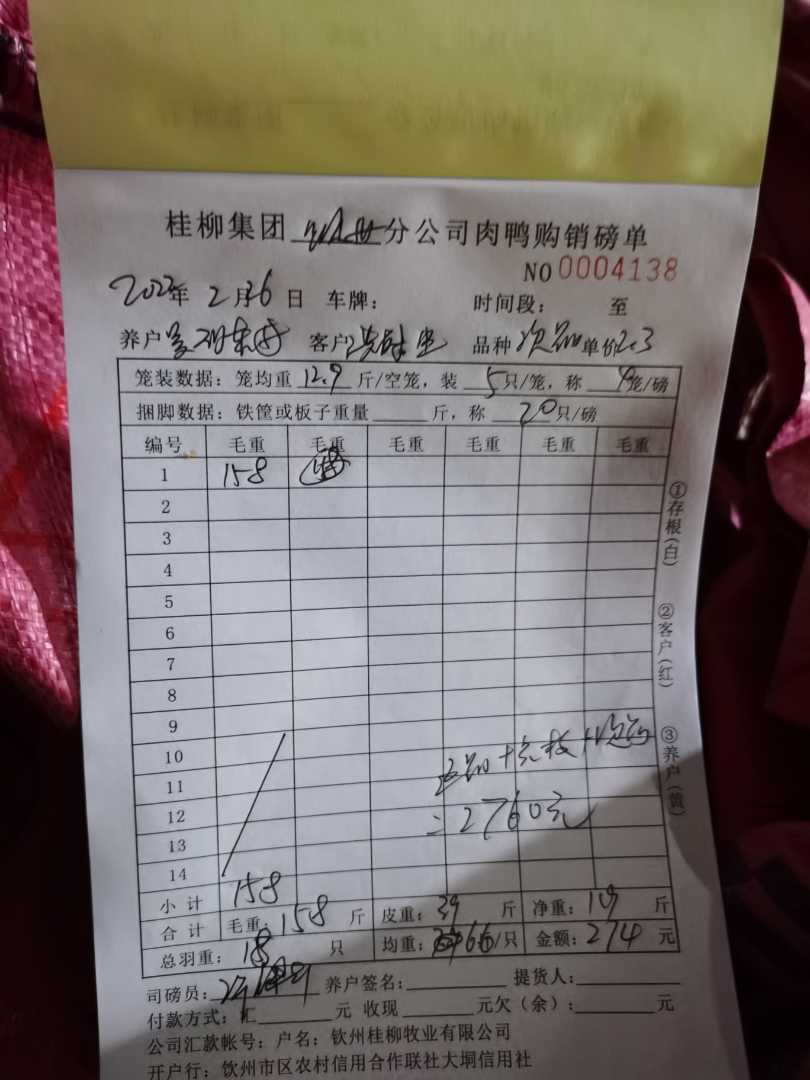 桂柳集团 分公司肉鸭购销磅单
NO 0004138
2022年 2月26日 车牌： 时间段： 至
养户 客户 品种 次品 单价2.3
笼装数据：笼均重 12.9 斤/空笼，装 5只/笼，称 4笼/磅
捆脚数据：铁筐或板子重量 斤，称 20只/磅
编号 毛重 毛重 毛重 毛重 毛重 毛重
1 158
2
3
4
5
6
7
8
9
10
11
12
13
14
=2760元
小计 158
合计 毛重：158 斤 皮重：39 斤 净重：119 斤
总羽重：18 只 均重：6.6/只 金额：274 元
司磅员： 养户签名： 提货人：
付款方式：汇 元 收现 元欠（余）： 元
公司汇款帐号：户名：钦州桂柳牧业有限公司
开户行：饮州市区农村信用合作联社大垌信用社
①存根（白）
②客户（红）
③养户（黄）